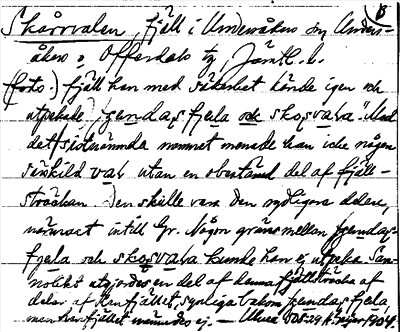 B
Skårvalen, fjäll i Undersåkers sn Unders-
åkers o. Offerdals tg, Jämtl. l.
(foto.) fjäll han med säkerhet kände igen och
utpekade, jændasfjæla och skosvala". Med
det sistnämnda namnet menade han icke någon
särskild val utan en obestämd del af fjäll-
sträckan. Den skulle vara den sydligare delen,
närmast intill Gr. Någon gräns mellan jændas-
fjæla och skosvala kunde han ej utpeka. San-
nolikt utgjordes en del af denna fjällsträcka af
delar af fjället, synliga bakom jændasfjæla
men fjället nämndes ej. — Ulma 505:29 1904.